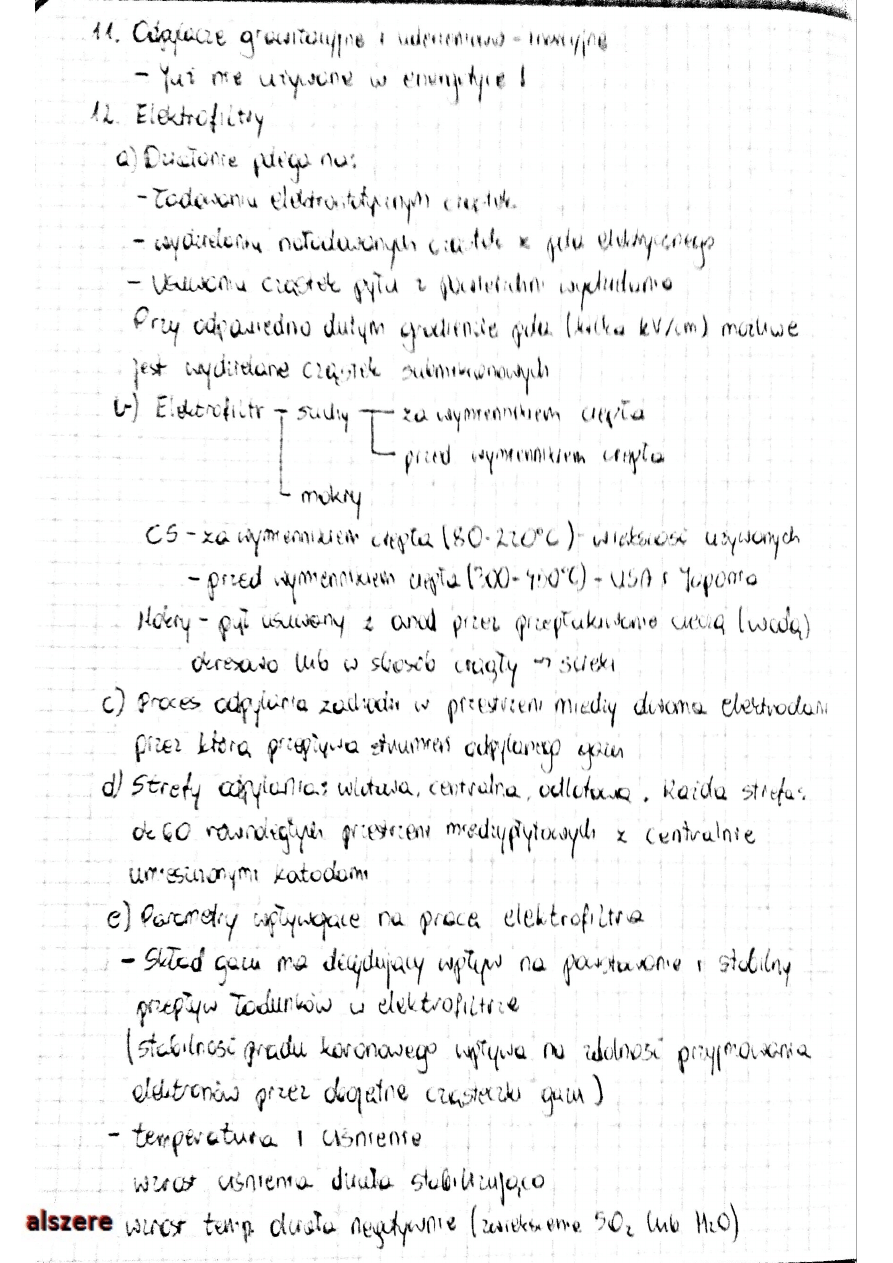 11. Odpylacze grawitacyjne i uderzeniowo-inercyjne
- Już nie używane w energetyce!
12. Elektrofiltry
a) Działanie polega na:
- Ładowaniu elektrostatycznym cząstek
- wydzielaniu naładowanych cząstek z pola elektrycznego
- Usuwaniu cząstek pyłu z powierzchni wydzielania
Przy odpowiednio dużym gradiencie pola (kilka kV/cm) możliwe
jest wydzielanie cząstek submikronowych
b) Elektrofiltr - suchy - za wymiennikiem ciepła
przed wymiennikiem ciepła
mokry
CS - za wymiennikiem ciepła (80-220°C) - większość używanych
- przed wymiennikiem ciepła (300-450°C) - USA i Japonia
Mokry - pył usuwany z anod przez przepłukiwanie cieczą (wodą)
okresowo lub w sposób ciągły → ścieki
c) Proces odpylania zachodzi w przestrzeni między dwoma elektrodami
przez którą przepływa strumień odpylanego gazu
d) Strefy odpylania: wlotowa, centralna, odlotowa. Każda strefa:
ok 60 równoległych przestrzeni międzypłytowych z centralnie
umieszczonymi katodami
e) Parametry wpływające na pracę elektrofiltra
- Skład gazu ma decydujący wpływ na powstawanie i stabilny
przepływ ładunków w elektrofiltrze
(stabilność prądu koronowego wpływa na zdolność przyjmowania
elektronów przez obojętne cząsteczki gazu)
- temperatura i ciśnienie
wzrost ciśnienia działa stabilizująco
wzrost temp. działa negatywnie (zwiększenie SO₂ lub H₂O)
alszere